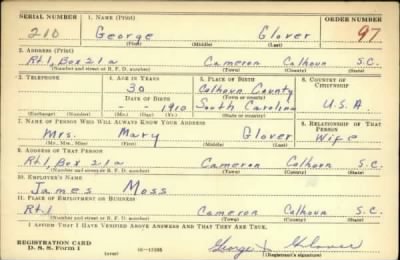 SERIAL NUMBER 1. NAME (Print) ORDER NUMBER
210 George Glover 97
(First) (Middle) (Last)
2. ADDRESS (Print)
Rt.1, Box 21a Cameron Calhoun S.C.
(Number and street or R. F. D. number) (Town) (County) (State)
3. TELEPHONE 4. AGE IN YEARS 5. PLACE OF BIRTH 6. COUNTRY OF CITIZENSHIP
30 Calhoun County
DATE OF BIRTH (Town or county)
- - 1910 South Carolina U.S.A
(Exchange) (Number) (Mo.) (Day) (Yr.) (State or country)
7. NAME OF PERSON WHO WILL ALWAYS KNOW YOUR ADDRESS 8. RELATIONSHIP OF THAT PERSON
Mrs. Mary Glover Wife
(Mr., Mrs., Miss) (First) (Middle) (Last)
9. ADDRESS OF THAT PERSON
Rt.1, Box 21a Cameron Calhoun S.C.
(Number and street or R. F. D. number) (Town) (County) (State)
10. EMPLOYER'S NAME
James Moss
11. PLACE OF EMPLOYMENT OR BUSINESS
Rt.1 Cameron Calhoun S.C.
(Number and street or R. F. D. number) (Town) (County) (State)
I AFFIRM THAT I HAVE VERIFIED ABOVE ANSWERS AND THAT THEY ARE TRUE.
REGISTRATION CARD George Glover
D. S. S. Form 1 (over) (Registrant's signature)